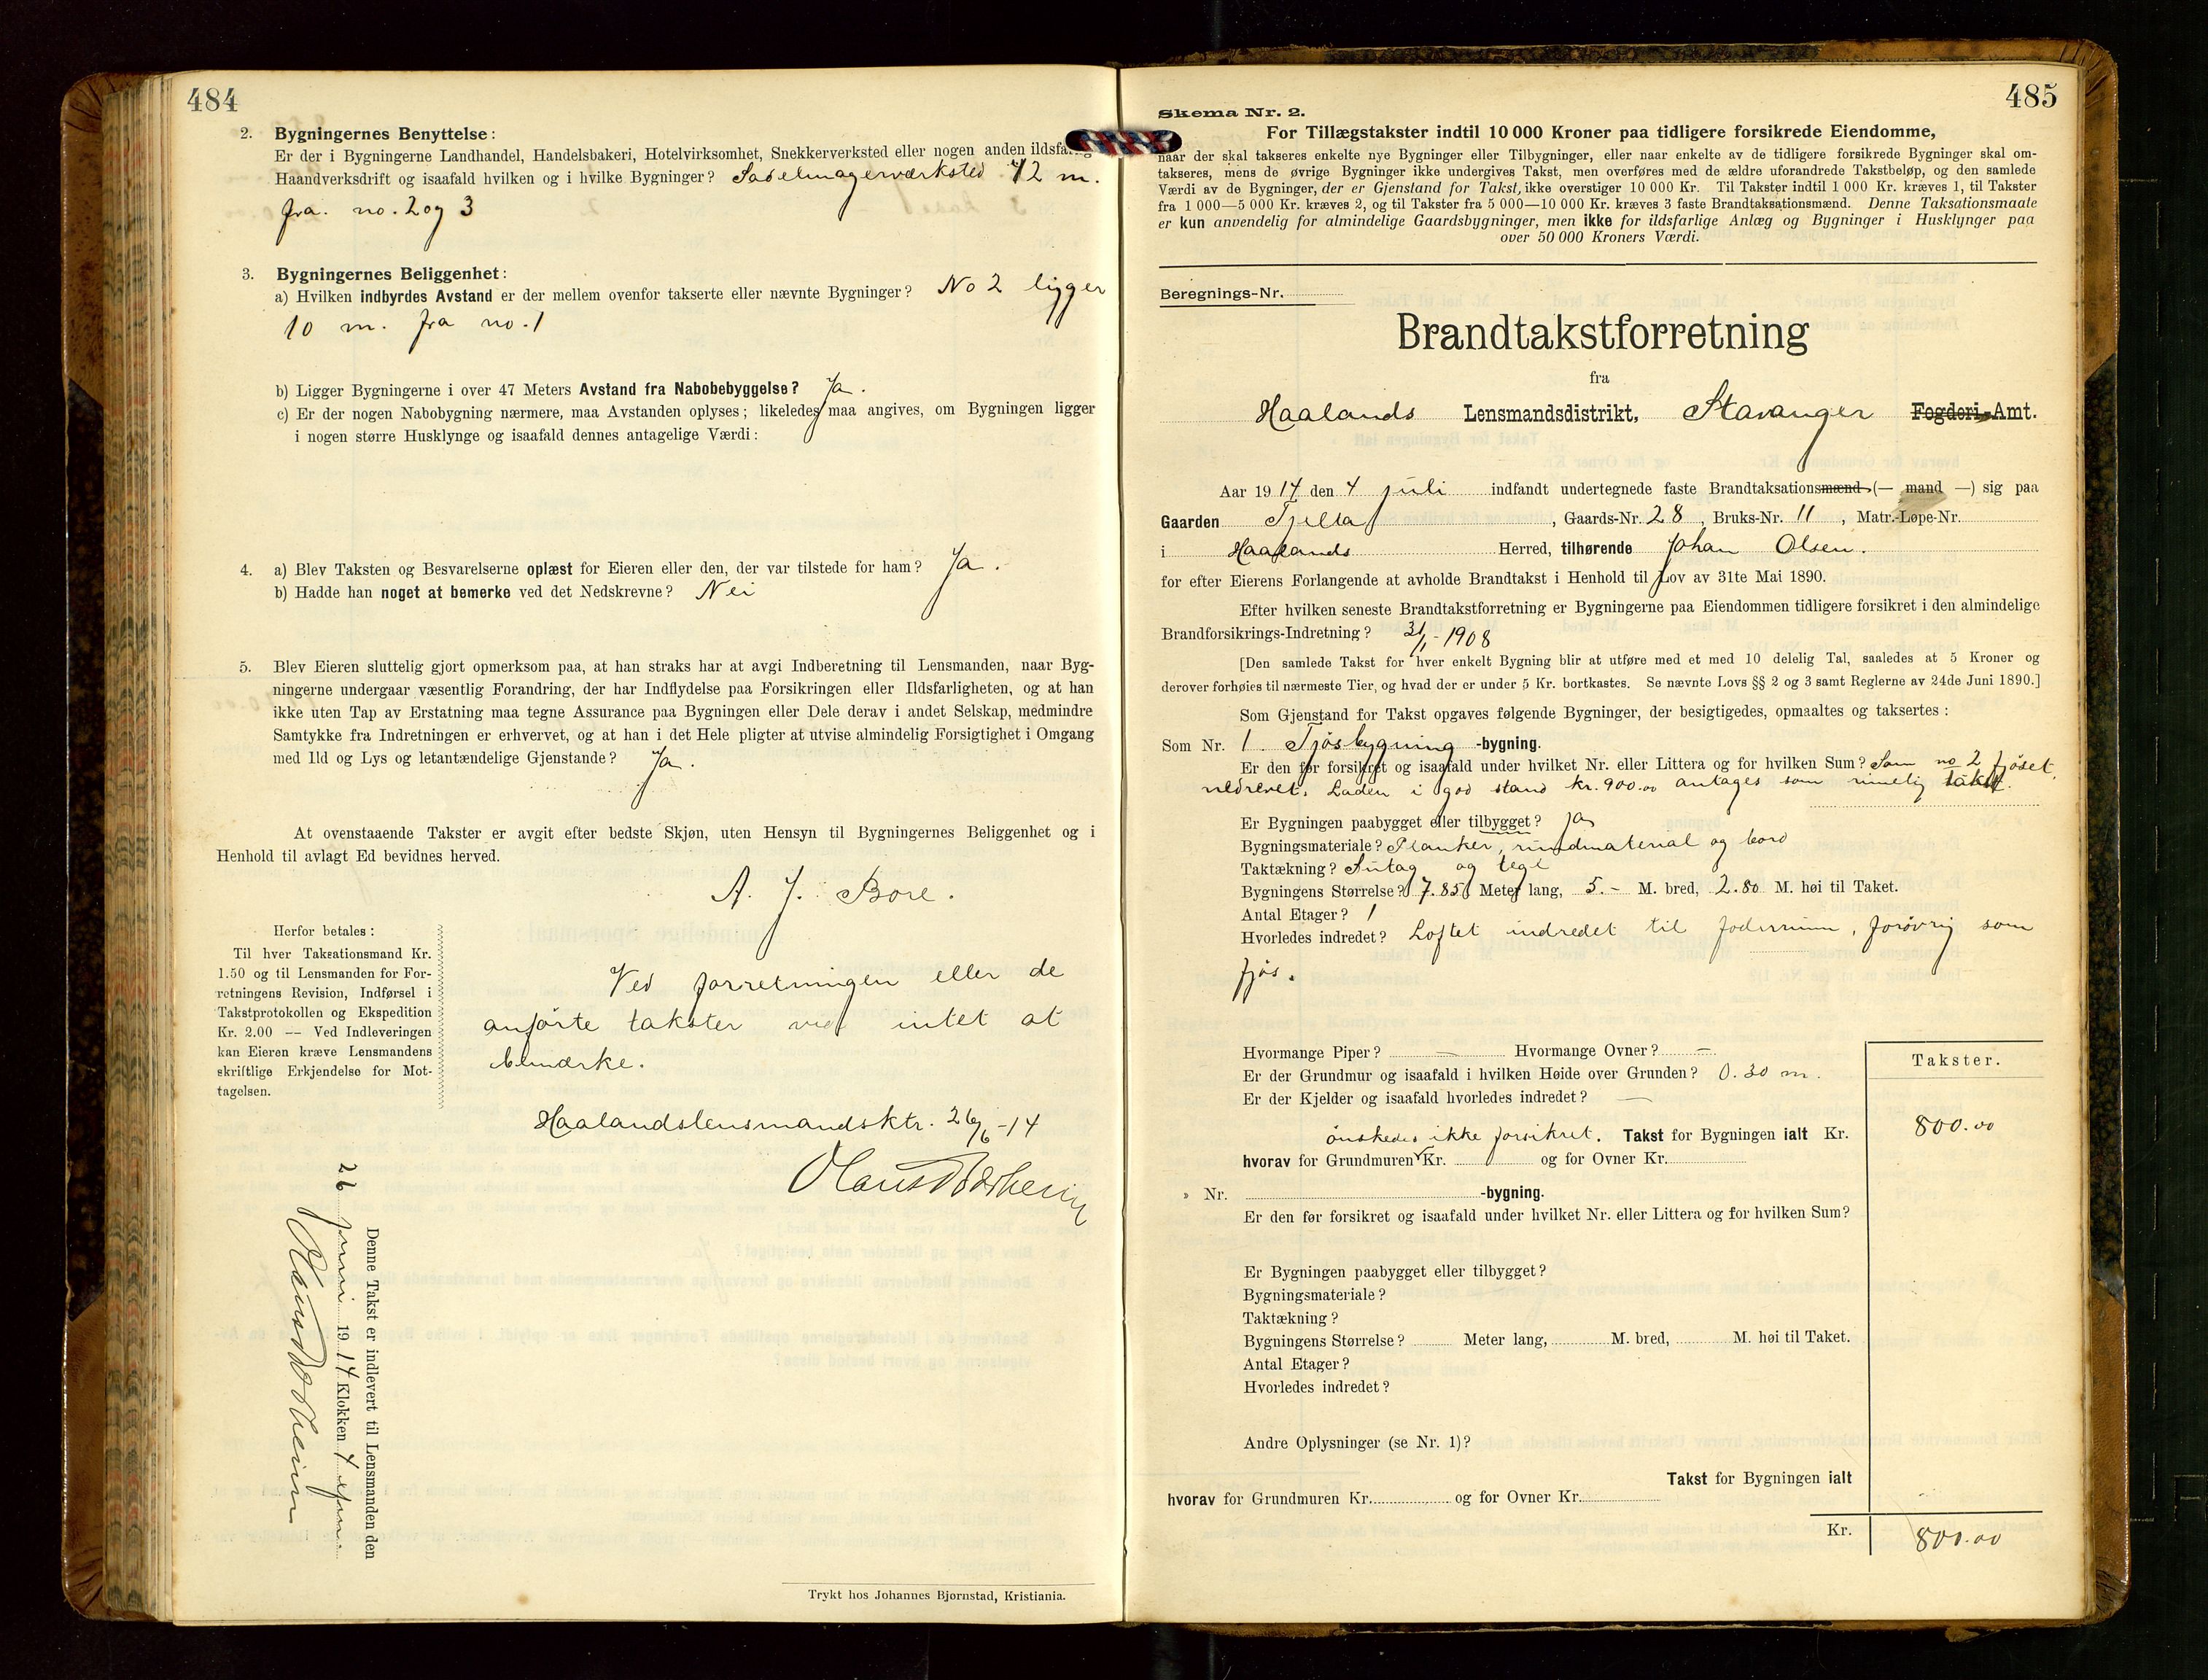 484
2. Bygningernes Benyttelse:
Er der i Bygningerne Landhandel, Handelsbakeri, Hotelvirksomhet, Snekkerverksted eller nogen anden ildsfarlig
Haandverksdrift og isaafald hvilken og i hvilke Bygninger? Sadelmagerværksted 42 m.
fra. no. 2 og 3
3. Bygningernes Beliggenhet:
a) Hvilken indbyrdes Avstand er der mellem ovenfor takserte eller nævnte Bygninger? No 2 ligger
10 m. fra no. 1
b) Ligger Bygningerne i over 47 Meters Avstand fra Nabobebyggelse? Ja.
c) Er der nogen Nabobygning nærmere, maa Avstanden oplyses; likeledes maa angives, om Bygningen ligger
i nogen større Husklynge og isaafald dennes antagelige Værdi:
4. a) Blev Taksten og Besvarelserne oplæst for Eieren eller den, der var tilstede for ham? Ja.
b) Hadde han noget at bemerke ved det Nedskrevne? Nei
5. Blev Eieren sluttelig gjort opmerksom paa, at han straks har at avgi Indberetning til Lensmanden, naar Byg-
ningerne undergaar væsentlig Forandring, der har Indflydelse paa Forsikringen eller Ildsfarligheten, og at han
ikke uten Tap av Erstatning maa tegne Assurance paa Bygningen eller Dele derav i andet Selskap, medmindre
Samtykke fra Indretningen er erhvervet, og at han i det Hele pligter at utvise almindelig Forsigtighet i Omgang
med Ild og Lys og letantændelige Gjenstande? Ja.
At ovenstaaende Takster er avgit efter bedste Skjøn, uten Hensyn til Bygningernes Beliggenhet og i
Henhold til avlagt Ed bevidnes herved.
A. J. Bore.
Herfor betales:
Til hver Taksationsmand Kr.
1.50 og til Lensmanden for For-
retningens Revision, Indførsel i
Takstprotokollen og Ekspedition
Kr. 2.00 — Ved Indleveringen
kan Eieren kræve Lensmandens
skriftlige Erkjendelse for Mot-
tagelsen.
Ved forretningen eller de
anførte takster ved intet at
bemærke.
Haalandslensmandsktr. 26/6-14
Denne Takst er indlevert til Lensmanden den
26 Juni 1914 Klokken 4 efm
Trykt hos Johannes Bjørnstad, Kristiania.
485
Skema Nr. 2.
For Tillægstakster indtil 10 000 Kroner paa tidligere forsikrede Eiendomme,
naar der skal takseres enkelte nye Bygninger eller Tilbygninger, eller naar enkelte av de tidligere forsikrede Bygninger skal om-
takseres, mens de øvrige Bygninger ikke undergives Takst, men overføres med de ældre uforandrede Takstbeløp, og den samlede
Værdi av de Bygninger, der er Gjenstand for Takst, ikke overstiger 10 000 Kr. Til Takster indtil 1 000 Kr. kræves 1, til Takster
fra 1 000—5 000 Kr. kræves 2, og til Takster fra 5 000—10 000 Kr. kræves 3 faste Brandtaksationsmænd. Denne Taksationsmaate
er kun anvendelig for almindelige Gaardsbygninger, men ikke for ildsfarlige Anlæg og Bygninger i Husklynger paa
over 50 000 Kroners Værdi.
Beregnings-Nr.
Brandtakstforretning
fra
Haalands Lensmandsdistrikt, Stavanger Fogderi-Amt.
Aar 1914 den 4 juli indfandt undertegnede faste Brandtaksationsmænd (— mand —) sig paa
Gaarden Tjelta, Gaards-Nr. 28, Bruks-Nr. 11, Matr.-Løpe-Nr.
i Haalands Herred, tilhørende Johan Olsen.
for efter Eierens Forlangende at avholde Brandtakst i Henhold til Lov av 31te Mai 1890.
Efter hvilken seneste Brandtakstforretning er Bygningerne paa Eiendommen tidligere forsikret i den almindelige
Brandforsikrings-Indretning? 31/1-1908
[Den samlede Takst for hver enkelt Bygning blir at utføre med et med 10 delelig Tal, saaledes at 5 Kroner og
derover forhøies til nærmeste Tier, og hvad der er under 5 Kr. bortkastes. Se nævnte Lovs §§ 2 og 3 samt Reglerne av 24de Juni 1890.]
Som Gjenstand for Takst opgaves følgende Bygninger, der besigtigedes, opmaaltes og taksertes:
Som Nr. 1. Fjøsbygning -bygning.
Er den før forsikret og isaafald under hvilket Nr. eller Littera og for hvilken Sum? Som no 2 fjøset
nedrevet. Laden i god stand kr. 900.00 antages som rimelig takst.
Er Bygningen paabygget eller tilbygget? Ja
Bygningsmateriale? Planker, rundmaterial og bord
Taktækning? Sutag og tegl
Bygningens Størrelse? 7.85 Meter lang, 5.- M. bred, 2.80 M. høi til Taket.
Antal Etager? 1
Hvorledes indredet? Loftet indredet til foderrum, forøvrig som
fjøs.
Hvormange Piper? — Hvormange Ovner? —
Er der Grundmur og isaafald i hvilken Høide over Grunden? 0.30 m.
Er der Kjelder og isaafald hvorledes indredet? —
Takster.
ønskedes ikke forsikret. Takst for Bygningen ialt Kr. 800.00
hvorav for Grundmuren Kr. og for Ovner Kr.
» Nr. -bygning.
Er den før forsikret og isaafald under hvilket Nr. eller Littera og for hvilken Sum?
Er Bygningen paabygget eller tilbygget?
Bygningsmateriale?
Taktækning?
Bygningens Størrelse? Meter lang, M. bred, M. høi til Taket.
Antal Etager?
Hvorledes indredet?
Andre Oplysninger (se Nr. 1)?
Takst for Bygningen ialt
hvorav for Grundmuren Kr. og for Ovner Kr.
Kr. 800.00